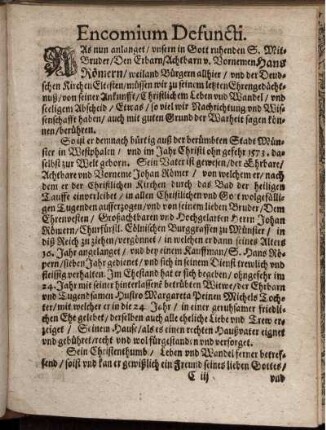 Encomium Defuncti.
WAs nun anlanget / vnsern in Gott ruhenden S. Mit-
Bruder / Den Erbarn / Achtbarn v. Vornemen Hans
Römern / weiland Bürgern allhier / vnd der Deud-
schen Kirchen Eltesten / müssen wir zu seinem letzten Ehrengedächt-
nuß / von seiner Ankunfft / Christlichem Leben vnd Wandel / vnd
seeligem Abscheid / Etwas / so viel wir Nachrichtung vnd Wis-
senschafft haben / auch mit guten Grund der Warheit sagen kön-
nen / berühren.
So ist er demnach bürtig auß der berümbten Stadt Mün-
ster in Westphalen / vnd im Jahr Christi ohngefehr 1571. da-
selbst zur Welt geborn. Sein Vater ist gewesen / der Ehrbare /
Achtbare vnd Vorneme Johan Römer / von welchem er / nach
dem er der Christlichen Kirchen durch das Bad der heiligen
Tauffe einverleibet / in allen Christlichen vnd Gottwolgefälli-
gen Tugenden aufferzogen / vnd von seinem lieben Bruder / Dem
Ehrenvesten / Großachtbaren vnd Hochgelarten Herrn Johan
Römern / Churfürstl. Cölnischen Burggraffen zu Münster / in
diß Reich zu ziehen / vergönnet / in welchen er dann seines Alters
30. Jahr angelanget / vnd bey einem Kauffman / S. Hans Rö-
pern / sieben Jahr gedienet / vnd sich in seinem Dienst trewlich vnd
fleissig verhalten. Im Ehestand hat er sich begeben / ohngefehr im
24. Jahr mit seiner hinterlassenẽ betrübten Witwe / der Ehrbarn
vnd Tugendsamen Hustro Margareta Peinen Michels Toch-
ter / mit welcher er in die 24. Jahr / in einer geruhsamer friedli-
chen Ehe gelebet / derselben auch alle eheliche Liebe vnd Trew er-
zeiget / Seinem Hause / als es einen rechten Haußvater eignet
vnd gebühret / recht vnd wol fürgestanden vnd versorget.
Sein Christenthumb / Leben vnd Wandel ferner betref-
fend / so ist vnd kan er gewißlich ein Freund seines lieben Gottes /
C iij
vnd